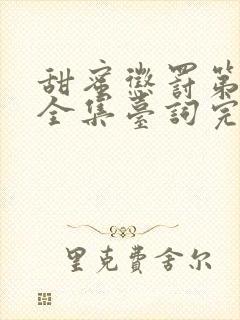 甜蜜懲罰第
全集臺詞完
里克費舍尔